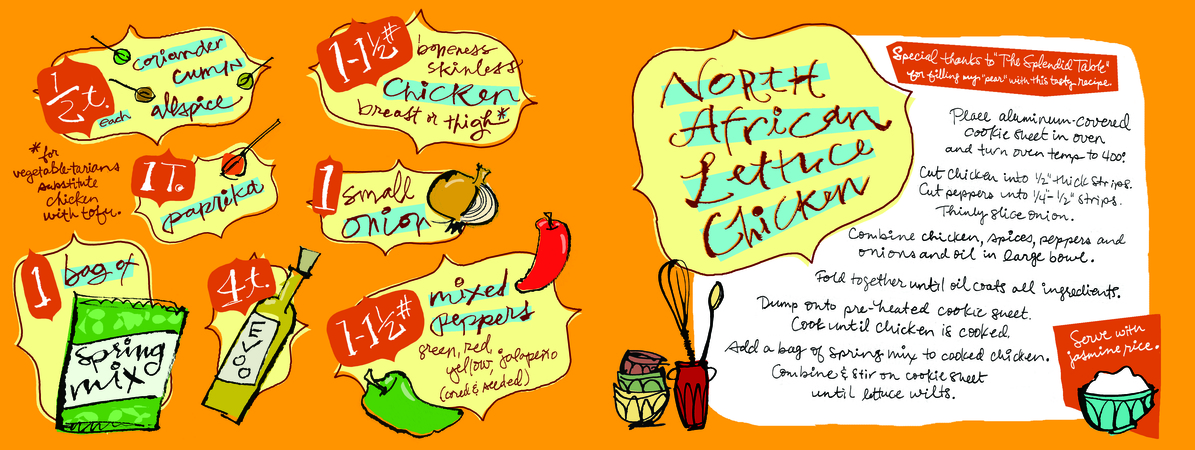 1/2 t.
each
coriander
cumin
allspice
1-1½#
boneless
skinless
chicken
breast or thigh*
*for
vegetable-tarians
substitute
chicken
with tofu.
1 T.
paprika
1 small
onion
1 bag of
spring
mix
4 t.
EVOO
1-1½#
mixed
peppers
green, red,
yellow, jalapeño
(cored & seeded)
North
African
Lettuce
Chicken
Special thanks to "The Splendid Table"
for filling my "pear" with this tasty recipe.
Place aluminum-covered
cookie sheet in oven
and turn oven temp to 400°.
Cut chicken into ½" thick strips.
Cut peppers into ¼"-½" strips.
Thinly slice onion.
Combine chicken, spices, peppers and
onions and oil in large bowl.
Fold together until oil coats all ingredients.
Dump onto pre-heated cookie sheet.
Cook until chicken is cooked.
Add a bag of spring mix to cooked chicken.
Combine & stir on cookie sheet
until lettuce wilts.
Serve with
jasmine rice.